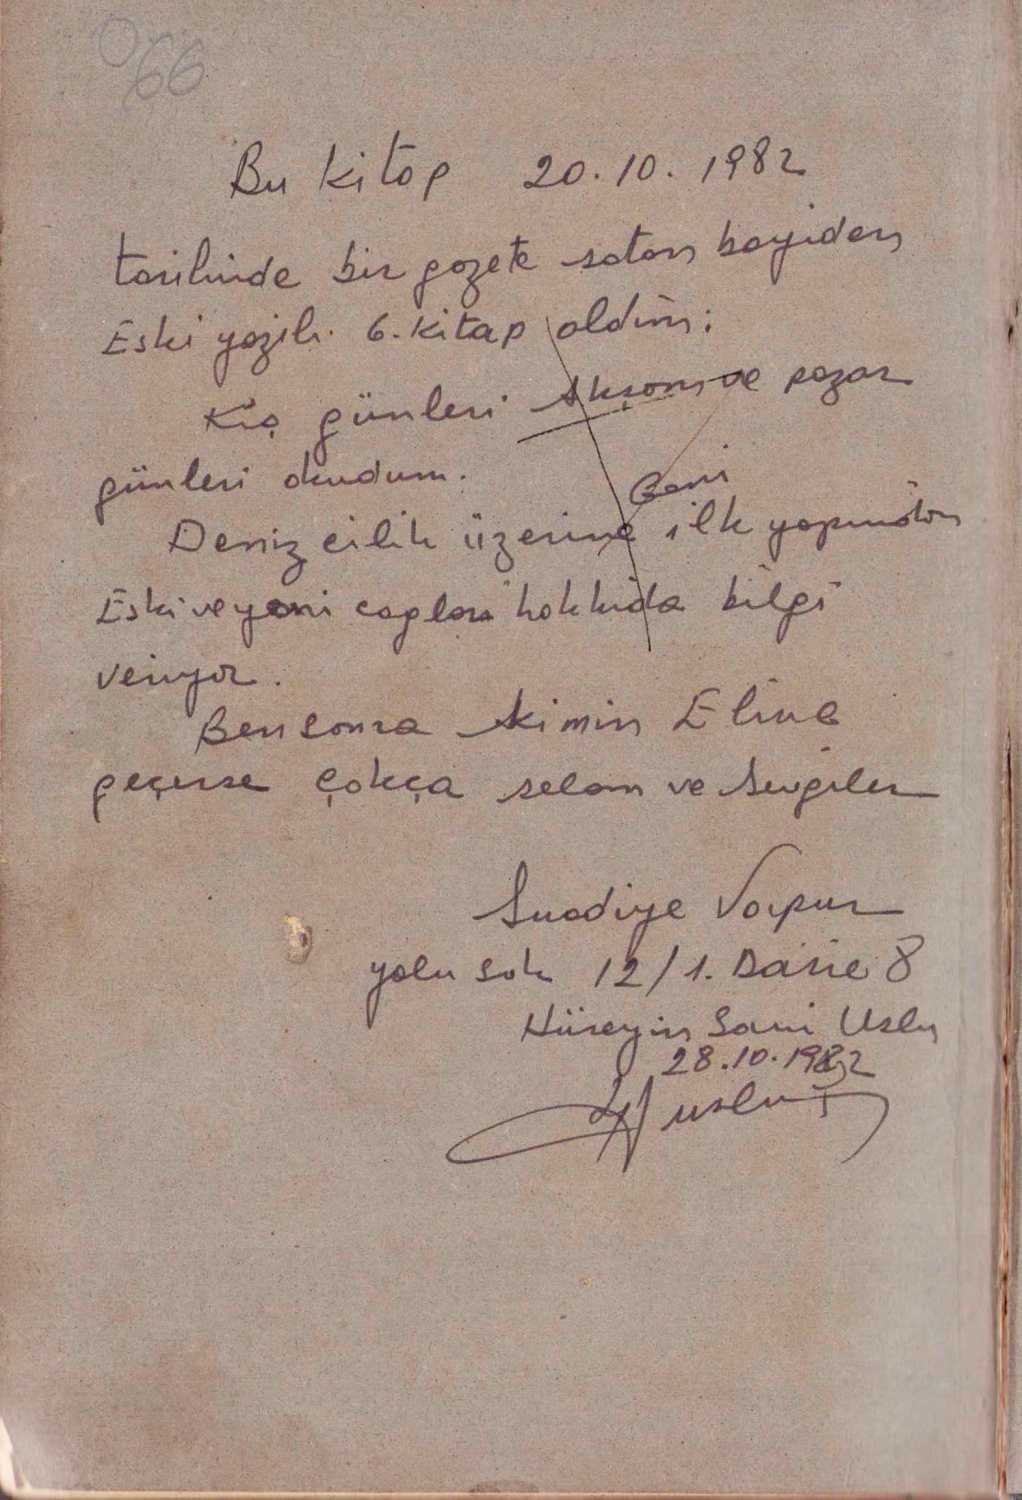 066
Bu kitap 20.10.1982
tarihinde bir gazete satan bayiden
Eski yazılı 6. kitap aldım:
Kış günleri Akşam ve pazar
günleri okudum.
Gemi
Deniz cilik üzerine ilk yapımdan
Eski ve yeni çagları hakkıda bilgi
veriyor.
Ben sonra kimin Eline
geçerse çokça selam ve Sevgiler
Suadiye Vapur
yolu sok 12/1. Daire 8
Hüseyin Sami Uslu
28.10.1982
H uslu